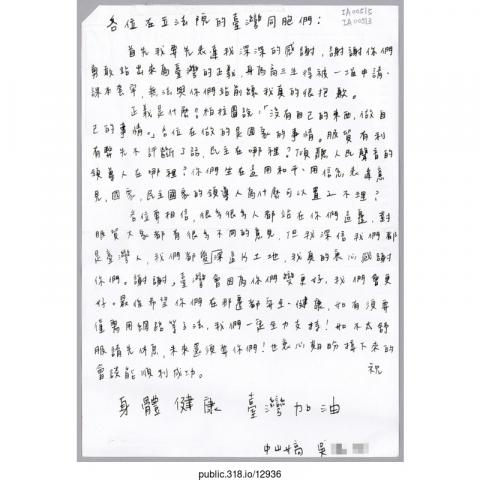 IA00515
IA00513
各位在立法院的臺灣同胞們：
首先我要先表達我深深的感謝，謝謝你們
勇敢站出來為臺灣的正義，身為高三生得被一堆申請、
課本套牢，無法與你們站前線我真的很抱歉。
正義是什麼？柏拉圖說：「沒有自己的東西，做自
己的事情。」各位在做的是國家的事情。服貿有利
有弊先不評斷了話，民主在哪裡？傾聽人民聲音的
領導人在哪裡？你們坐在這用和平、用信念表達意
見，國家、民主國家的領導人為什麼可以置之不理？
各位要相信，很多很多人都站在你們這邊，對
服貿大家都有很多不同的意見，但我深信我們都
是臺灣人，我們都愛深這片土地，我真的衷心感謝
你們。謝謝，臺灣會因為你們變更好，我們會更
好。最後希望你們在那邊都平安、健康，如有須要
僅需用網路等方法，我們一定全力支持！如不太舒
服請先休息，未來還須要你們！也衷心期盼接下來的
會談能順利成功。
祝
身體健康 臺灣加油
中山女高 吳
public.318.io/12936